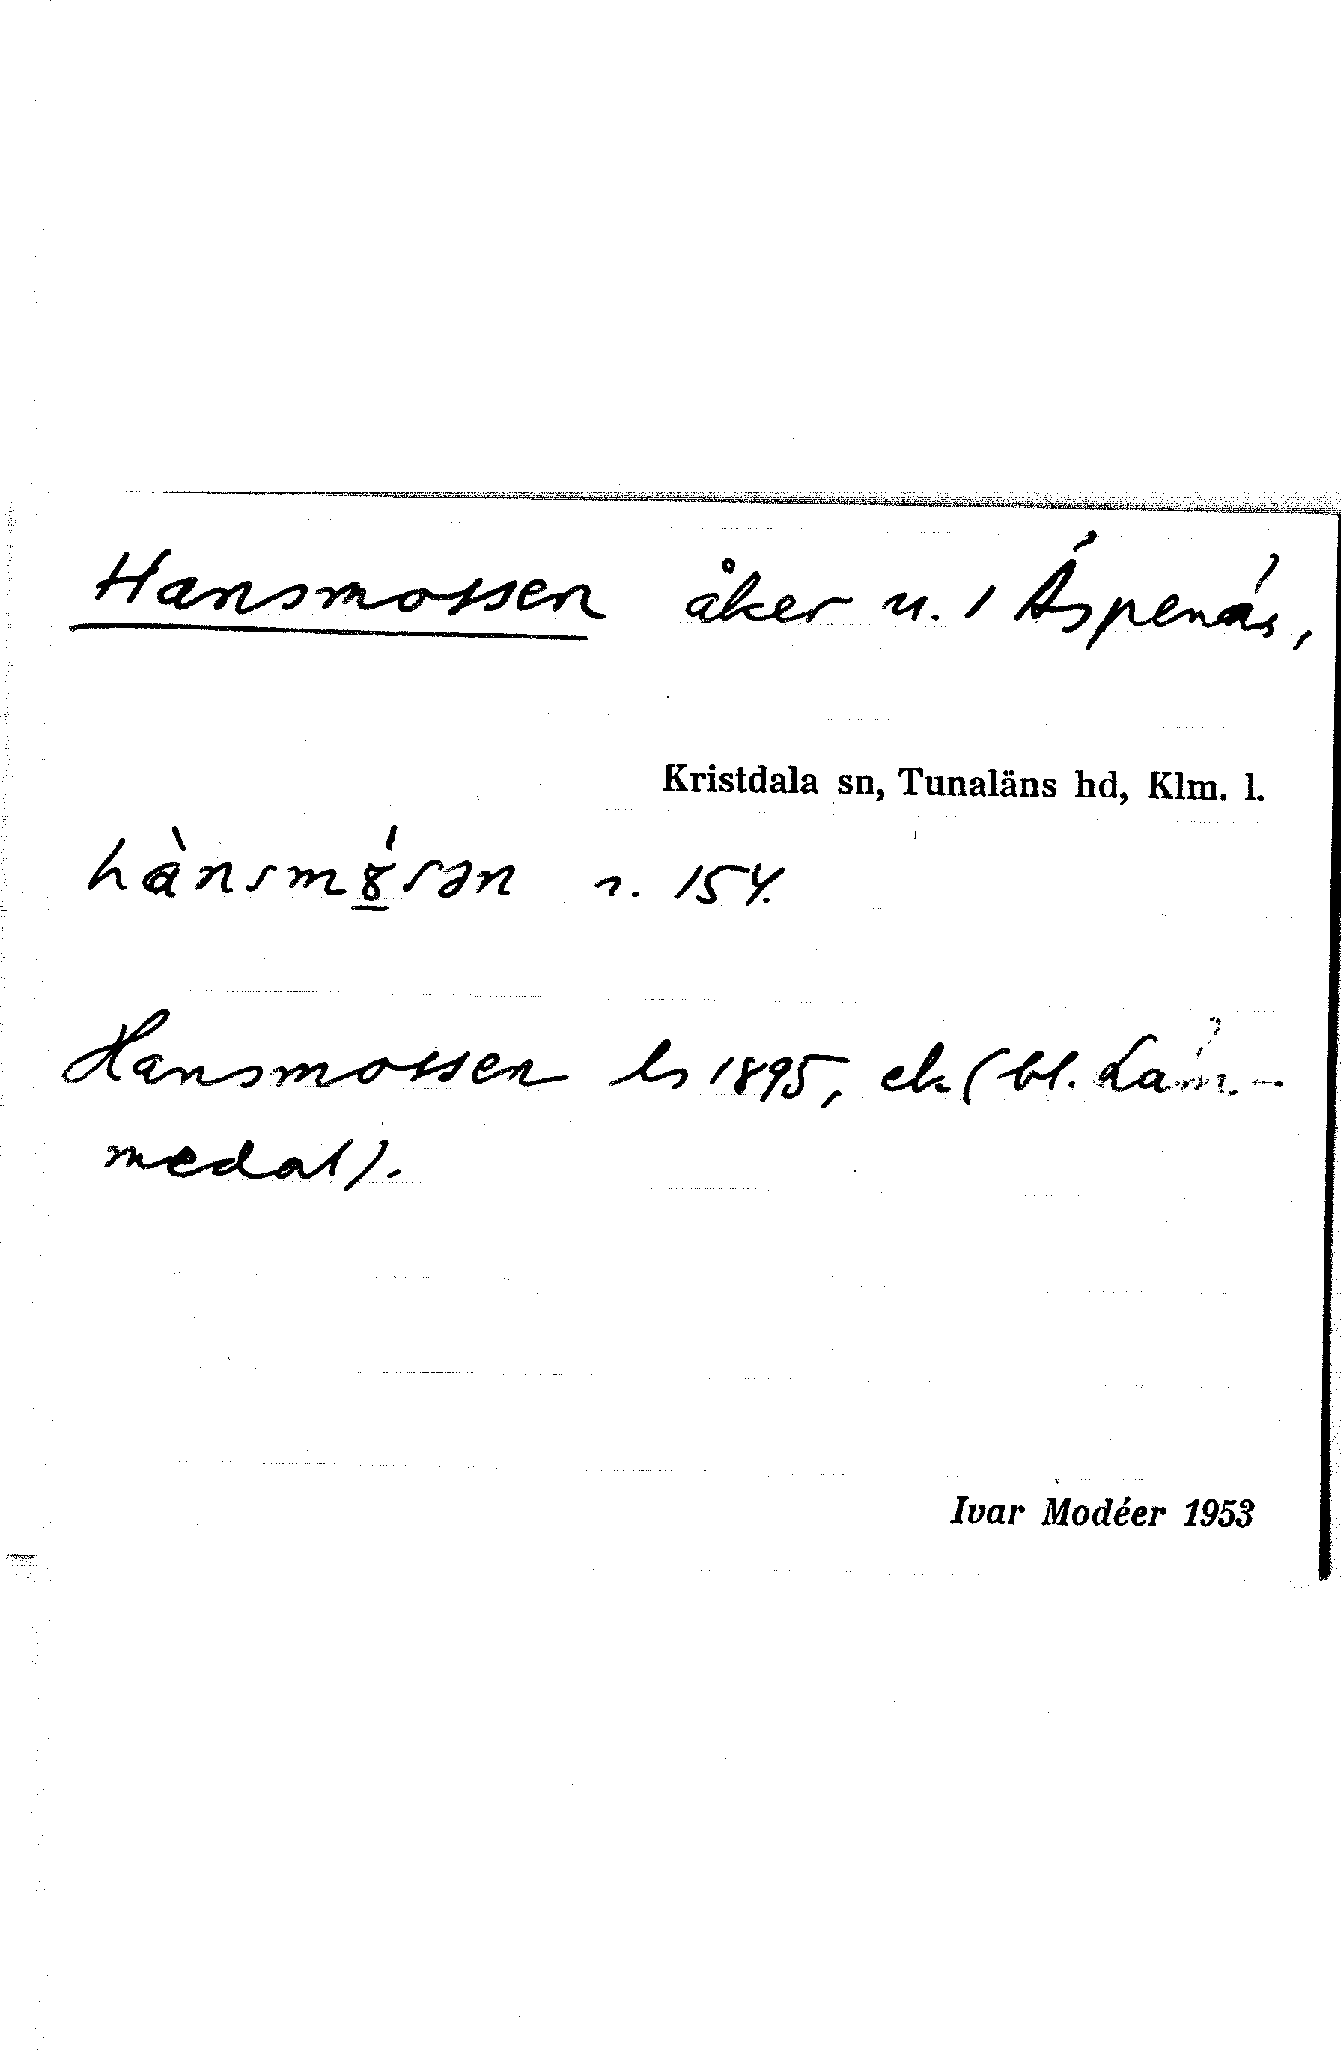 Hansmossen åker u. 1 Áspenás,
Kristdala sn, Tunaläns hd, Klm. l.
hànsm8́sən r. 154.
Hansmossen ls 1895, ek (bl.
medal).
Ivar Modéer 1953